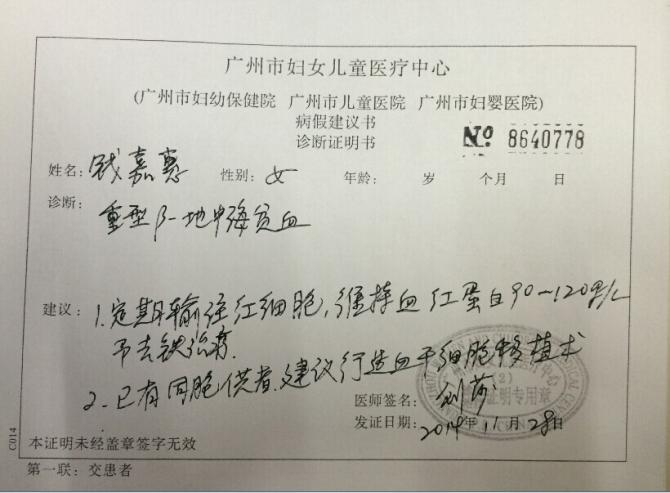 广州市妇女儿童医疗中心
(广州市妇幼保健院 广州市儿童医院 广州市妇婴医院)
病假建议书
诊断证明书
№ 8640778
姓名: 钱嘉惠 性别: 女 年龄: 岁 个月 日
诊断: 重型β-地中海贫血
建议: 1.定期输注红细胞,维持血红蛋白90~120g/L
予去铁治疗.
2.已有同胞供者,建议行造血干细胞移植术
(2)
证明专用章
医师签名: 刘莎
发证日期: 2014年11月28日
本证明未经盖章签字无效
C014
第一联: 交患者